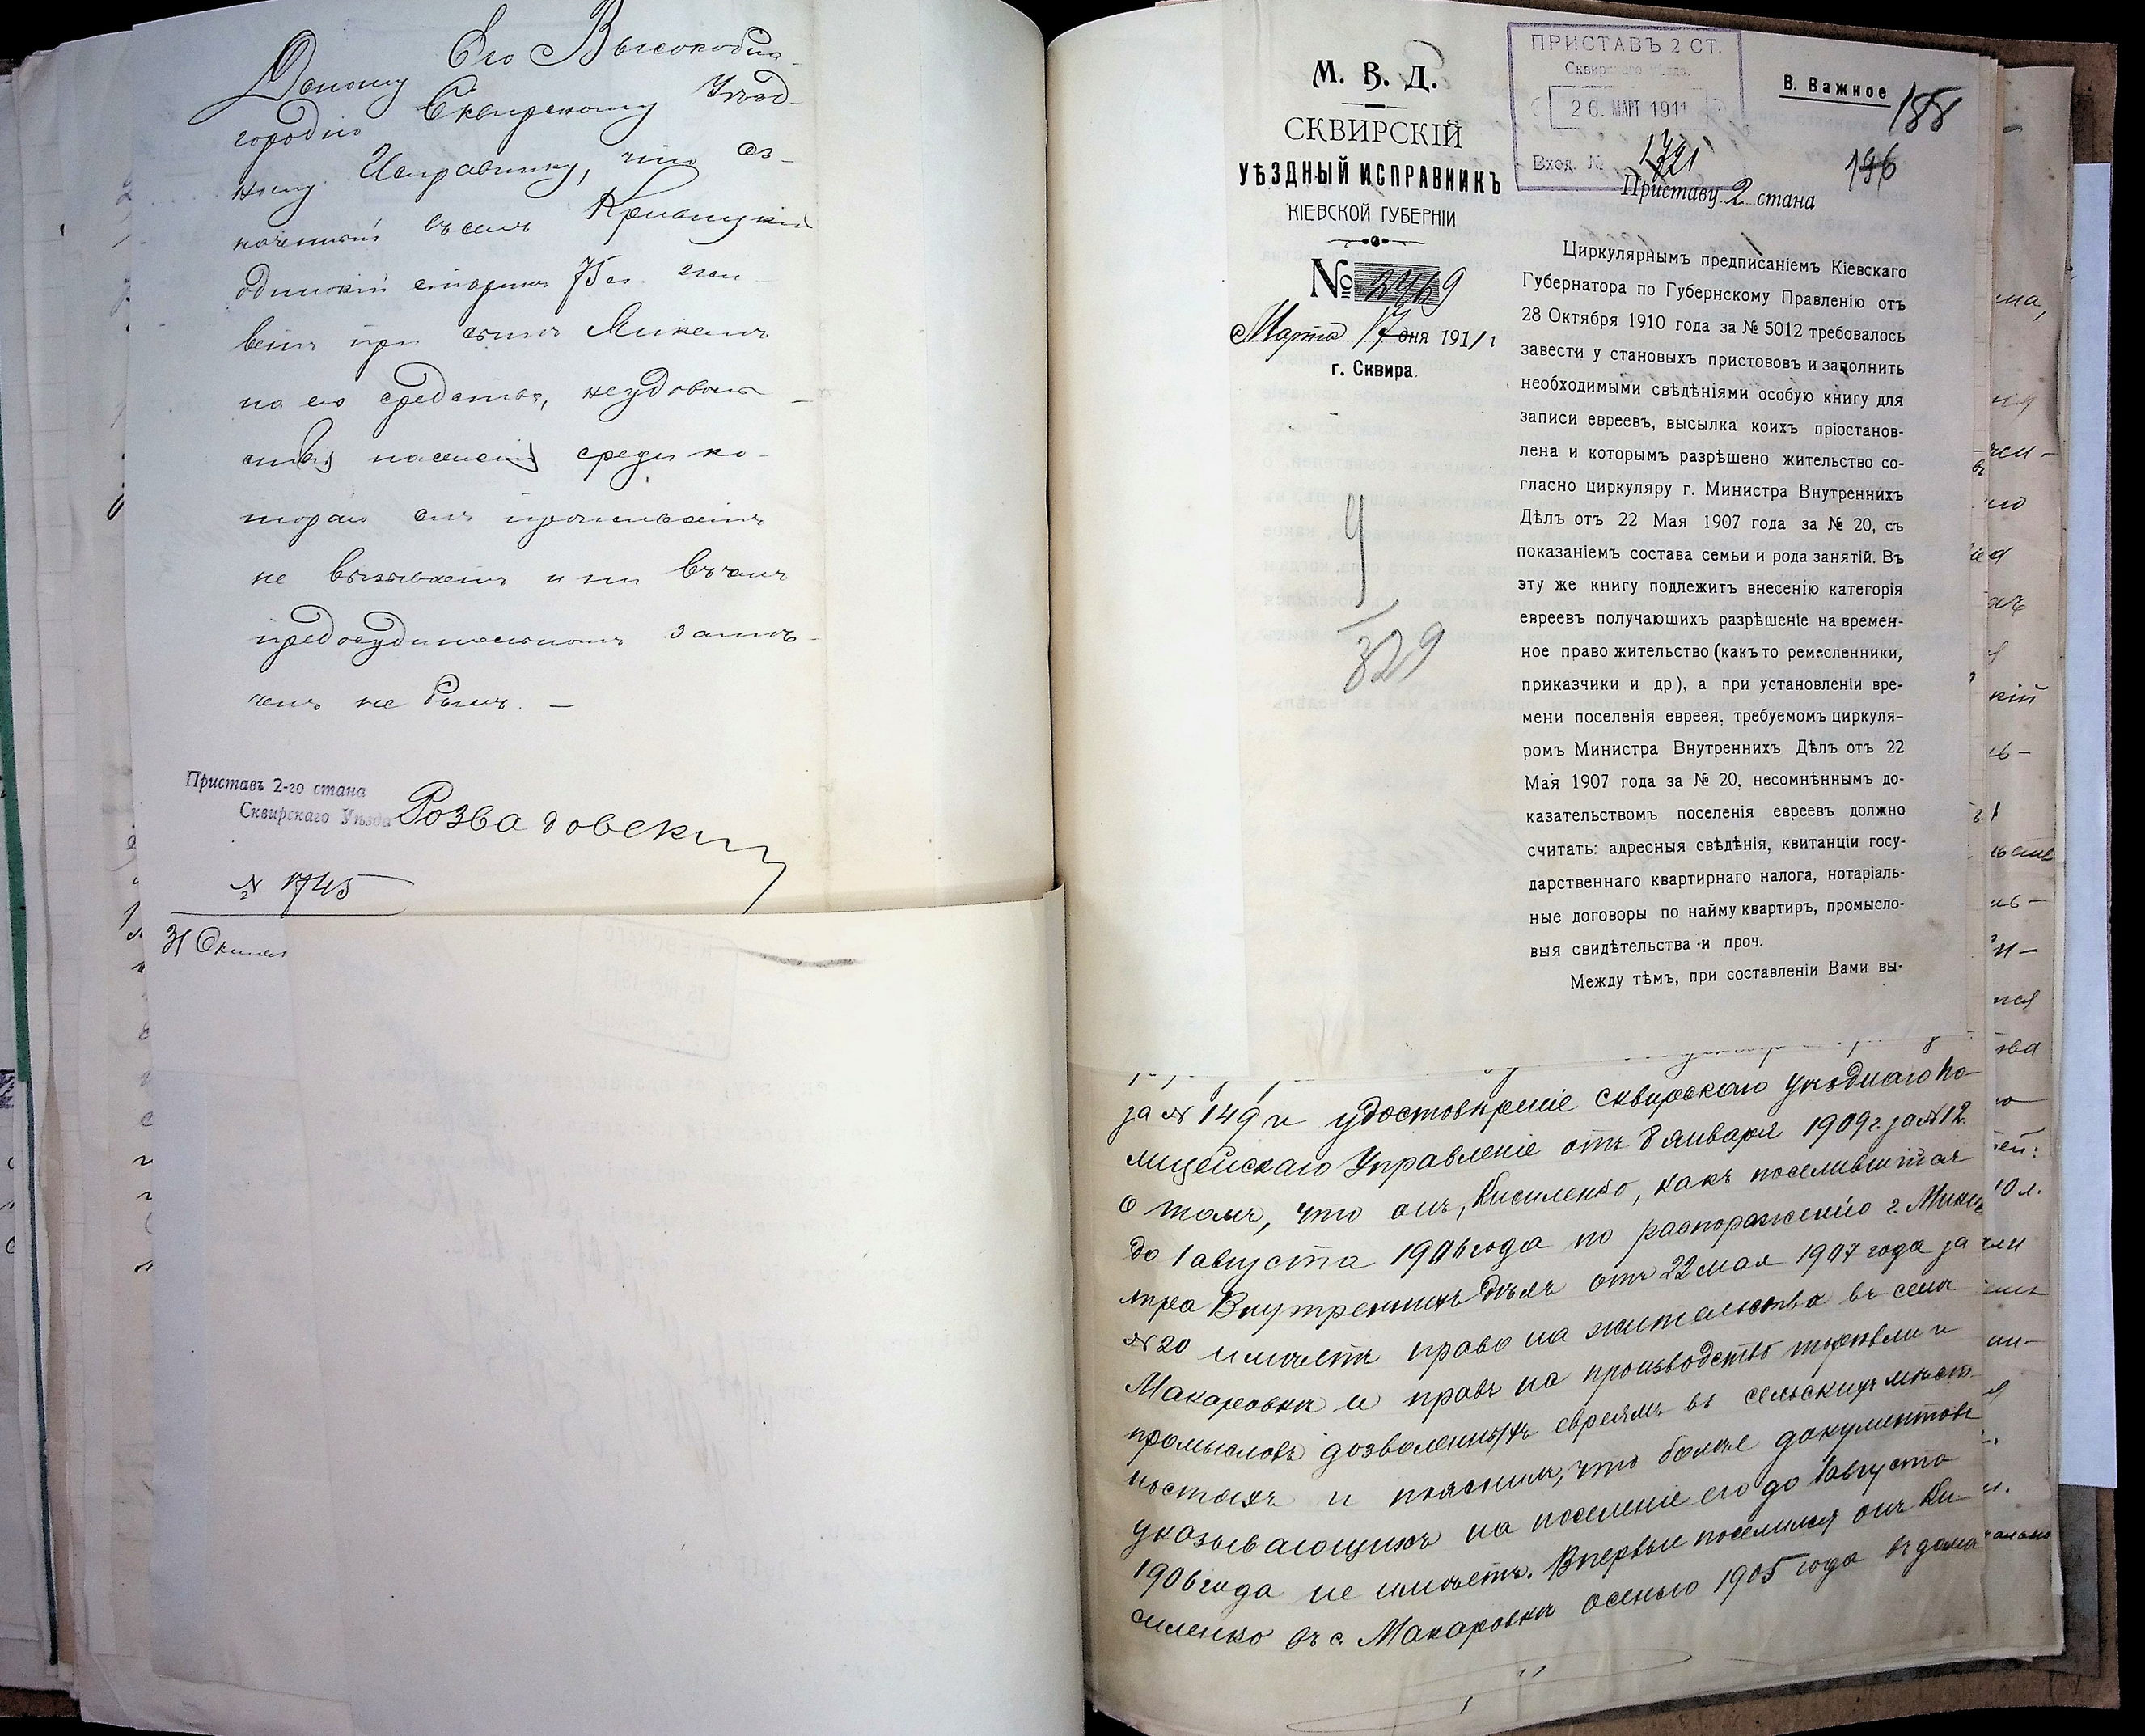 Доношу Его Высокобла-
городію Сквирскому Уѣзд-
ному Исправнику, что оз-
наченный въ семъ Кривицкій
одинокій старикъ 75 л. жи-
ветъ при сынѣ
на его средства, неудоволь-
ствія населенія среди ко-
тораго онъ проживаетъ
не вызываетъ и ни въ чемъ
предосудительномъ замѣ-
ченъ не былъ. —
Приставъ 2-го стана
Сквирскаго Уѣзда Розвадовскій
№ 1745
31
М. В. Д.
СКВИРСКІЙ
УѢЗДНЫЙ ИСПРАВНИКЪ
КІЕВСКОЙ ГУБЕРНІИ
№ 2469
Марта 17 дня 1911 г
г. Сквира.
9
329
ПРИСТАВЪ 2 СТ.
Сквирскаго уѣзда.
26. МАРТ 1911
Вход. № 1721
В. Важное
188
196
Приставу 2 стана
Циркулярнымъ предписаніемъ Кіевскаго
Губернатора по Губернскому Правленію отъ
28 Октября 1910 года за № 5012 требовалось
завести у становыхъ пристововъ и заполнить
необходимыми свѣдѣніями особую книгу для
записи евреевъ, высылка коихъ пріостанов-
лена и которымъ разрѣшено жительство со-
гласно циркуляру г. Министра Внутреннихъ
Дѣлъ отъ 22 Мая 1907 года за № 20, съ
показаніемъ состава семьи и рода занятій. Въ
эту же книгу подлежитъ внесенію категорія
евреевъ получающихъ разрѣшеніе на времен-
ное право жительство (какъ то ремесленники,
приказчики и др), а при установленіи вре-
мени поселенія еврея, требуемомъ циркуля-
ромъ Министра Внутреннихъ Дѣлъ отъ 22
Мая 1907 года за № 20, несомнѣннымъ до-
казательствомъ поселенія евреевъ должно
считать: адресныя свѣдѣнія, квитанціи госу-
дарственнаго квартирнаго налога, нотаріаль-
ные договоры по найму квартиръ, промысло-
выя свидѣтельства и проч.
Между тѣмъ, при составленіи Вами вы-
за № 149 и удостовѣреніе сквирскаго уѣзднаго по-
лицейскаго Управленіе отъ 8 января 1909 г. за № 12
о томъ, что онъ, Кисиленко, какъ поселившійся
до 1 августа 1906 года по распоряженію г. Мини
стра Внутреннихъ Дѣлъ отъ 22 мая 1907 года за
№ 20 имѣетъ право на жительство въ селѣ
Макаровкѣ и правъ на производство торговли и
промысловъ дозволенныхъ евреямъ въ сельскихъ мѣст-
ностяхъ и пояснилъ, что болѣе документовъ
указывающихъ на поселеніе его до 1 августа
1906 года не имѣетъ. Впервые поселился онъ Ки-
силенко въ с. Макаровкѣ осенью 1905 года въ домѣ